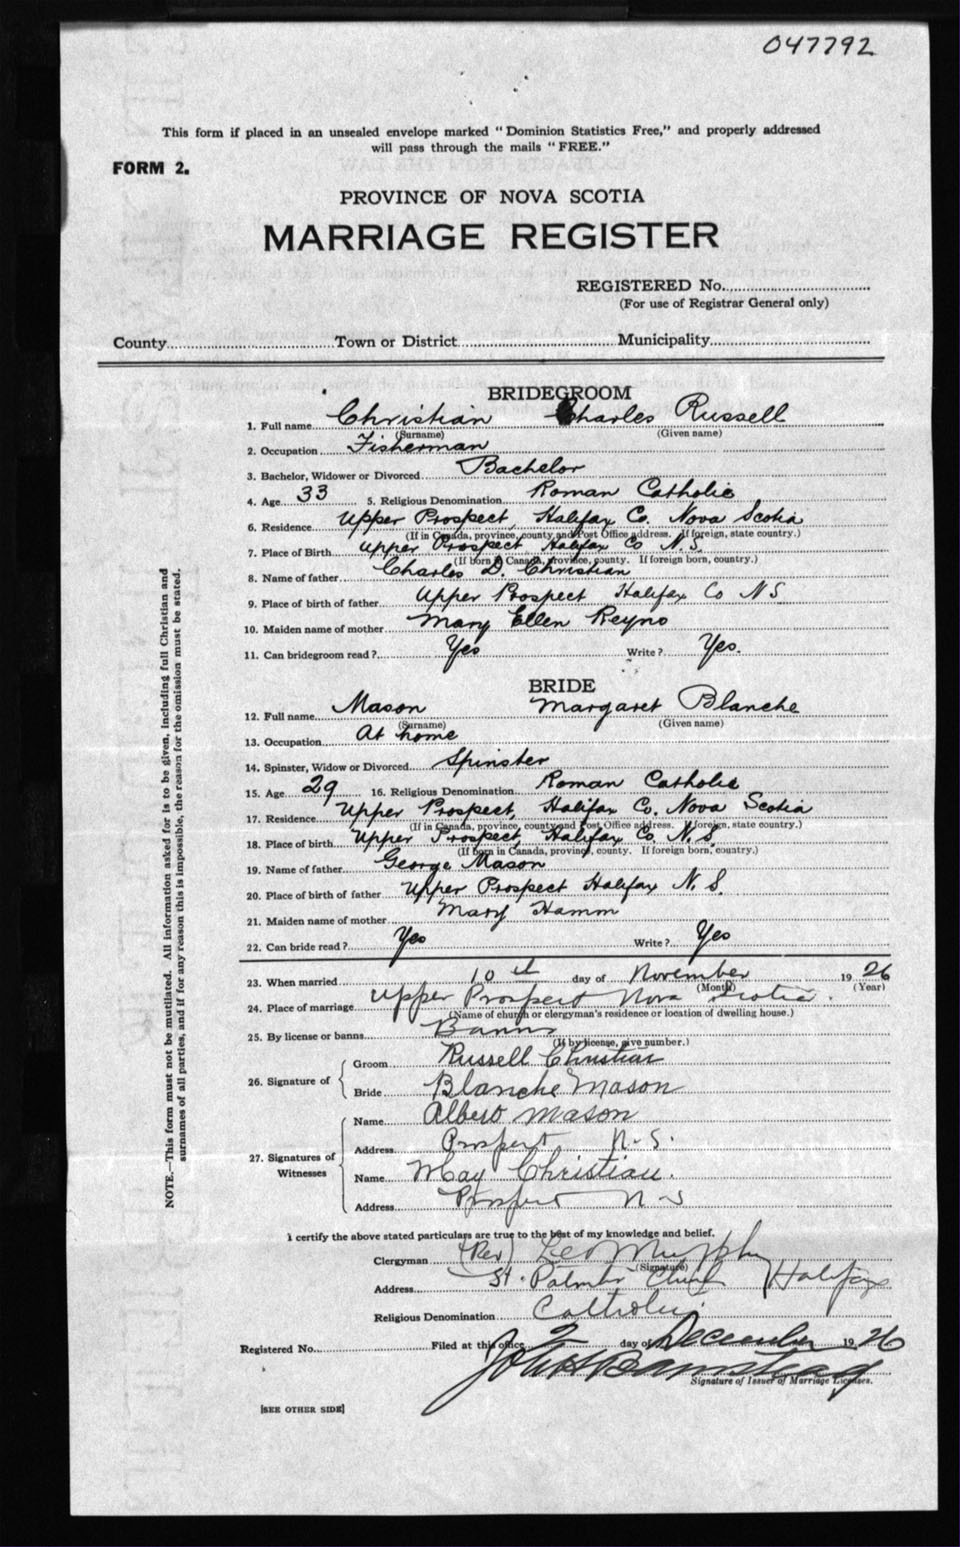 047792
This form if placed in an unsealed envelope marked "Dominion Statistics Free," and properly addressed
will pass through the mails "FREE."
FORM 2.
PROVINCE OF NOVA SCOTIA
MARRIAGE REGISTER
REGISTERED No.
(For use of Registrar General only)
County Town or District Municipality
BRIDEGROOM
1. Full name Christian Charles Russell
(Surname) (Given name)
2. Occupation Fisherman
3. Bachelor, Widower or Divorced Bachelor
4. Age 33 5. Religious Denomination Roman Catholic
6. Residence Upper Prospect, Halifax Co. Nova Scotia
(If in Canada, province, county and Post Office address. If foreign, state country.)
7. Place of Birth Upper Prospect Halifax Co N.S.
(If born in Canada, province, county. If foreign born, country.)
8. Name of father Charles D. Christian
9. Place of birth of father Upper Prospect Halifax Co N S
10. Maiden name of mother Mary Ellen Reyno
11. Can bridegroom read? Yes Write? Yes.
BRIDE
12. Full name Mason Margaret Blanche
(Surname) (Given name)
13. Occupation At home
14. Spinster, Widow or Divorced Spinster
15. Age 29 16. Religious Denomination Roman Catholic
17. Residence Upper Prospect, Halifax Co. Nova Scotia
(If in Canada, province, county and Post Office address. If foreign, state country.)
18. Place of birth Upper Prospect, Halifax Co. N.S.
(If born in Canada, province, county. If foreign born, country.)
19. Name of father George Mason
20. Place of birth of father Upper Prospect Halifax N.S.
21. Maiden name of mother Mary Hamm
22. Can bride read? Yes Write? Yes
23. When married 10th day of November 1926
(Month) (Year)
24. Place of marriage Upper Prospect Nova Scotia.
(Name of church or clergyman's residence or location of dwelling house.)
25. By license or banns Banns
(If by license, give number.)
26. Signature of
Groom Russell Christian
Bride Blanche Mason
27. Signatures of Witnesses
Name Albert Mason
Address Prospect N.S.
Name May Christian.
Address Prospect N-S
I certify the above stated particulars are true to the best of my knowledge and belief.
Clergyman (Rev) Leo Murphy
(Signature)
Address St. Church Halifax
Religious Denomination Catholic
Registered No. Filed at this office 2 day of December 1926
Signature of Issuer of Marriage Licenses.
[SEE OTHER SIDE]
NOTE.—This form must not be mutilated. All information asked for is to be given, including full Christian and
surnames of all parties, and if for any reason this is impossible, the reason for the omission must be stated.